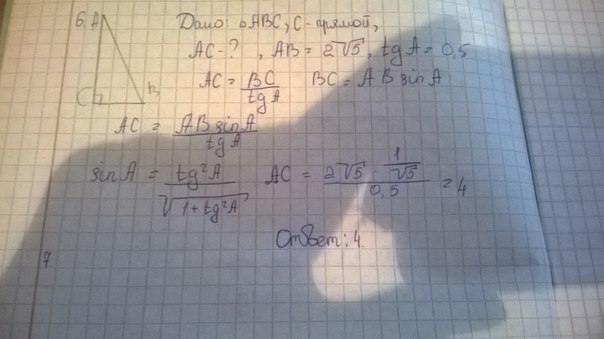 6. A Дано: △ABC, C - прямой,
AC - ? , AB = 2√5, tg A = 0,5
AC = BC / tg A BC = AB sin A
C B
AC = AB sin A / tg A
sin A = tg²A / √(1 + tg²A) AC = (2√5 · 1/√5) / 0,5 = 4
Ответ: 4.
7